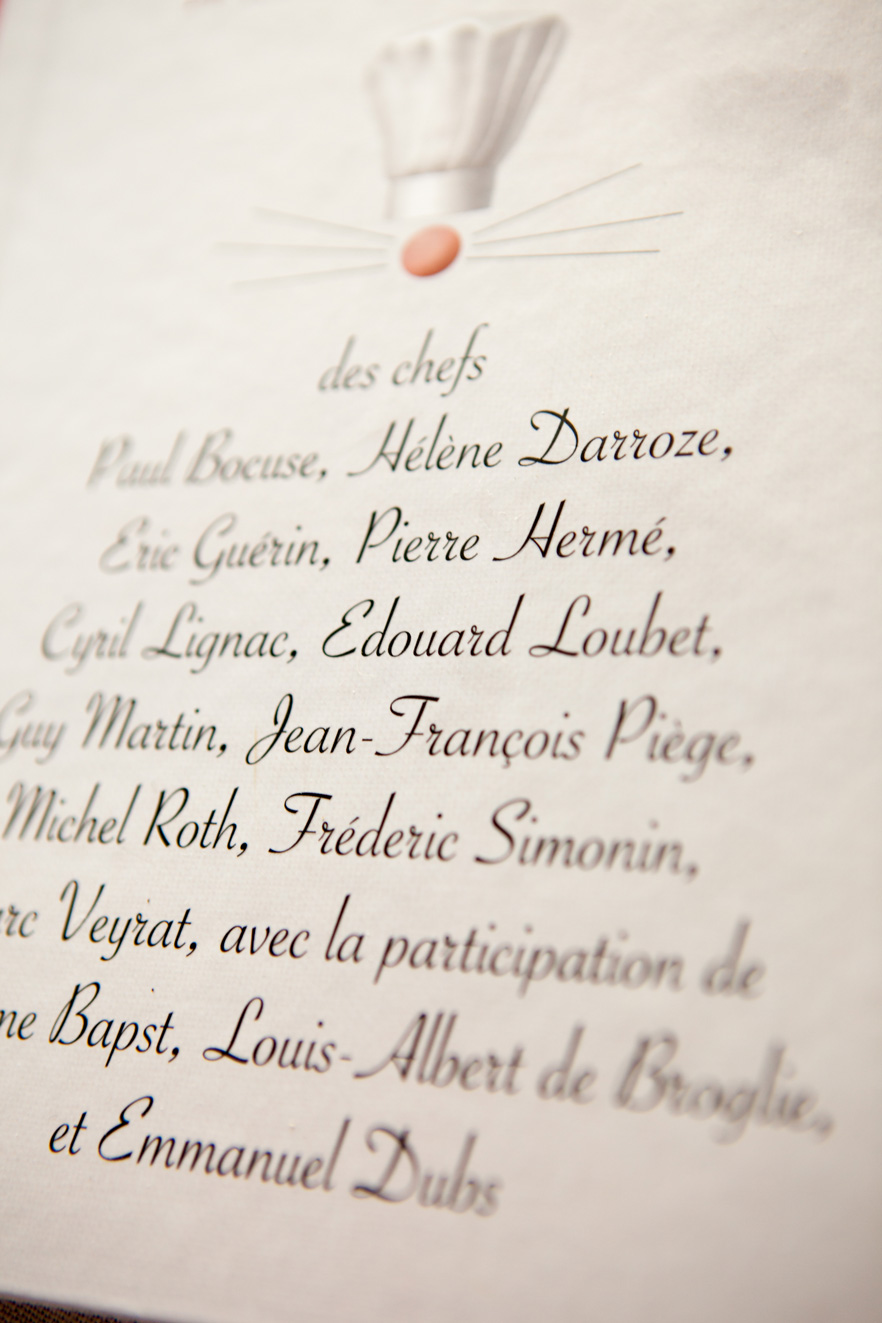 des chefs
Paul Bocuse, Hélène Darroze,
Eric Guérin, Pierre Hermé,
Cyril Lignac, Edouard Loubet,
Guy Martin, Jean-François Piège,
Michel Roth, Fréderic Simonin,
Veyrat, avec la participation de
Bapst, Louis-Albert de Broglie,
et Emmanuel Dubs